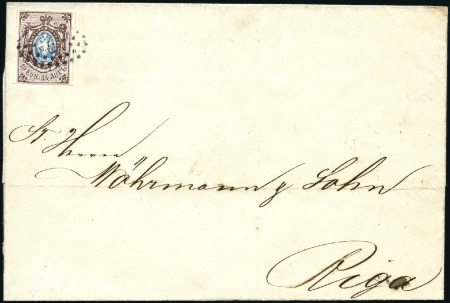 St. Herrn
Möhrmann & Sohn
Riga